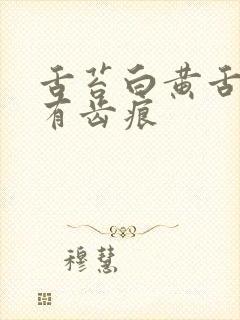 舌苔白黄舌
有齿痕
穆慧